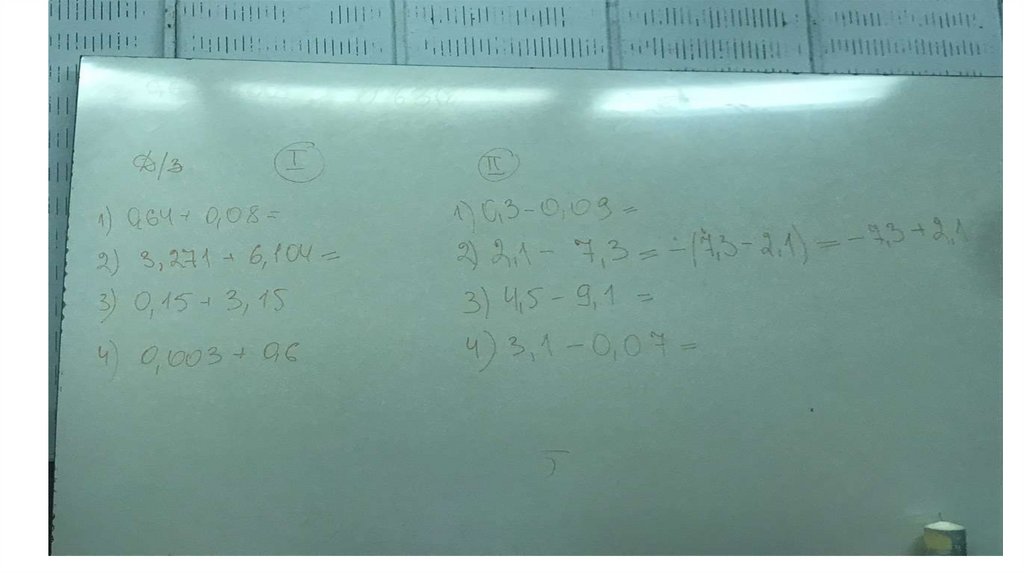 Д/З
I
1) 0,64 + 0,08 =
2) 3,271 + 6,104 =
3) 0,15 + 3,15
4) 0,003 + 0,6
II
1) 0,3 - 0,09 =
2) 2,1 - 7,3 = -(7,3 - 2,1) = -7,3 + 2,1
3) 4,5 - 9,1 =
4) 3,1 - 0,07 =